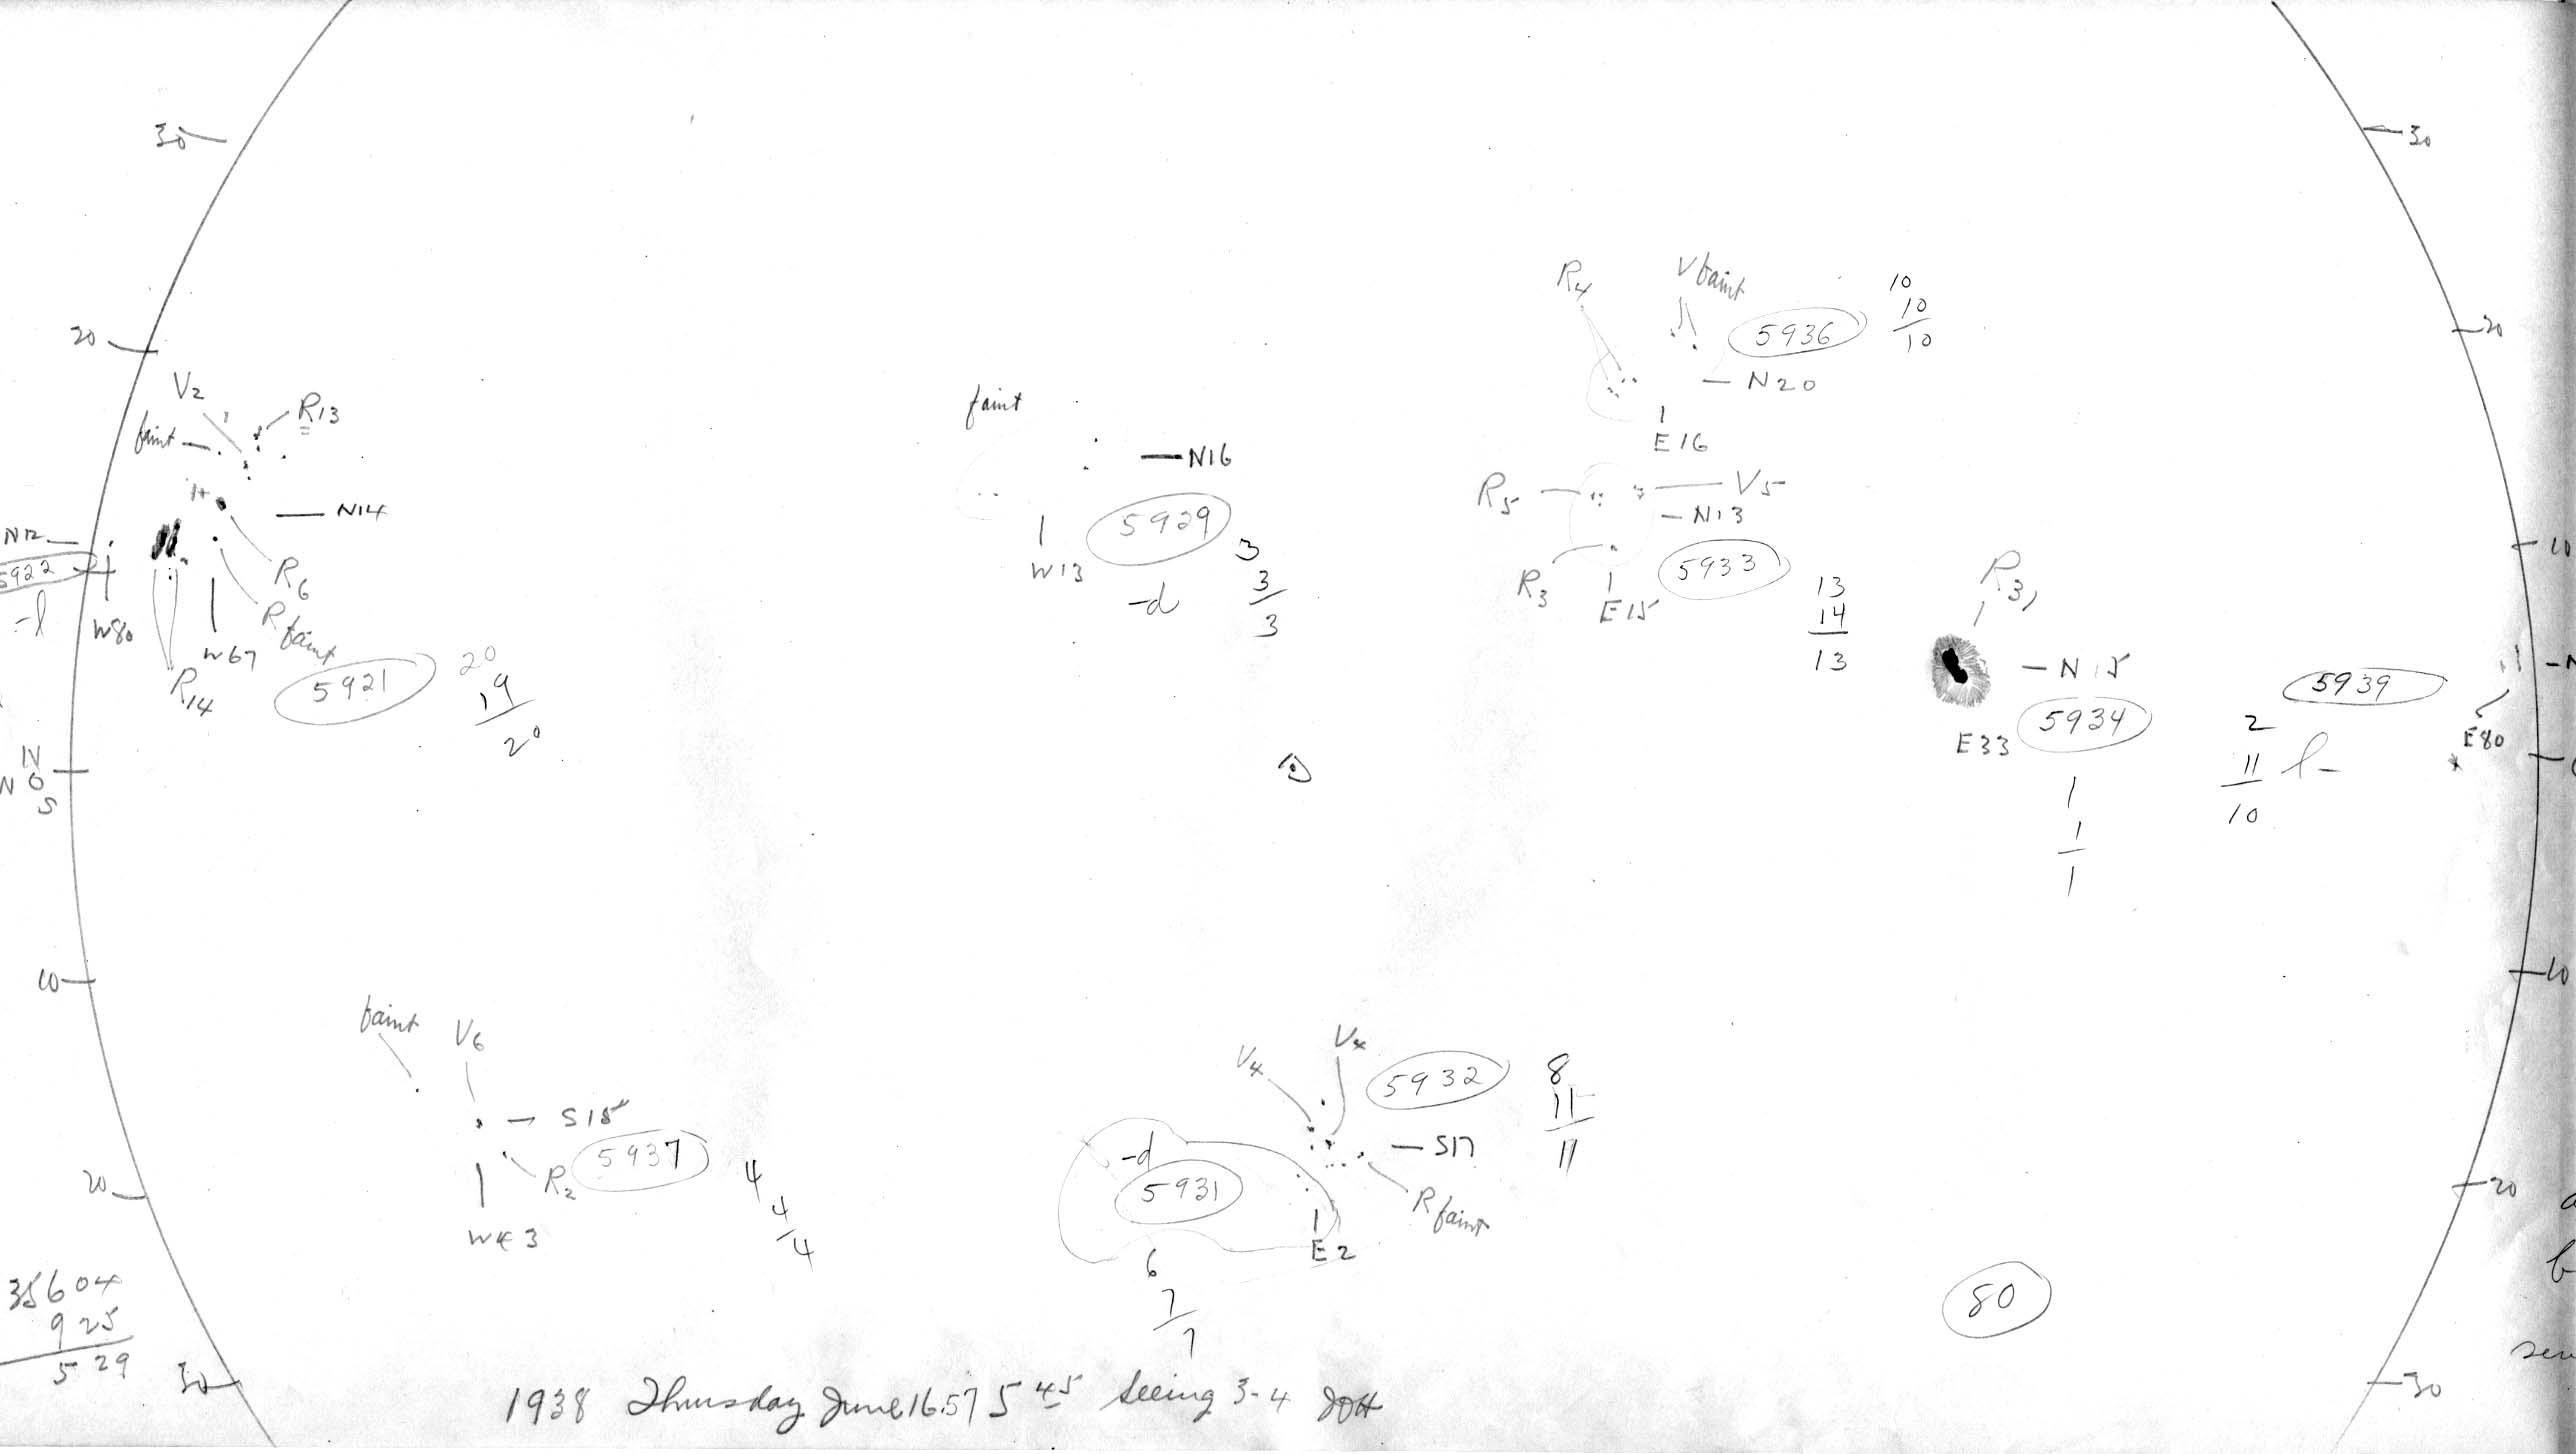 30
30
20
20
10
V2
R13
faint
1+
N14
N12
5922
-l
W80
R6
R faint
W67
R14
5921
20
19
20
faint
N16
5929
W13
-d
3
3
3
R4
V faint
5936
10
10
10
N20
E16
R5
V5
N13
R3
5933
E15
13
14
13
R3,
N15
5934
E33
1
1
1
5939
2
11
l-
10
E80
N
N 0
S
10
10
faint
V6
S15
5937
R2
W43
4
4
4
V4
V4
5932
8
11
11
S17
-d
5931
R faint
E2
6
7
7
20
20
80
35604
925
529
30
30
1938 Thursday June 16.57 5 45 Seeing 3-4